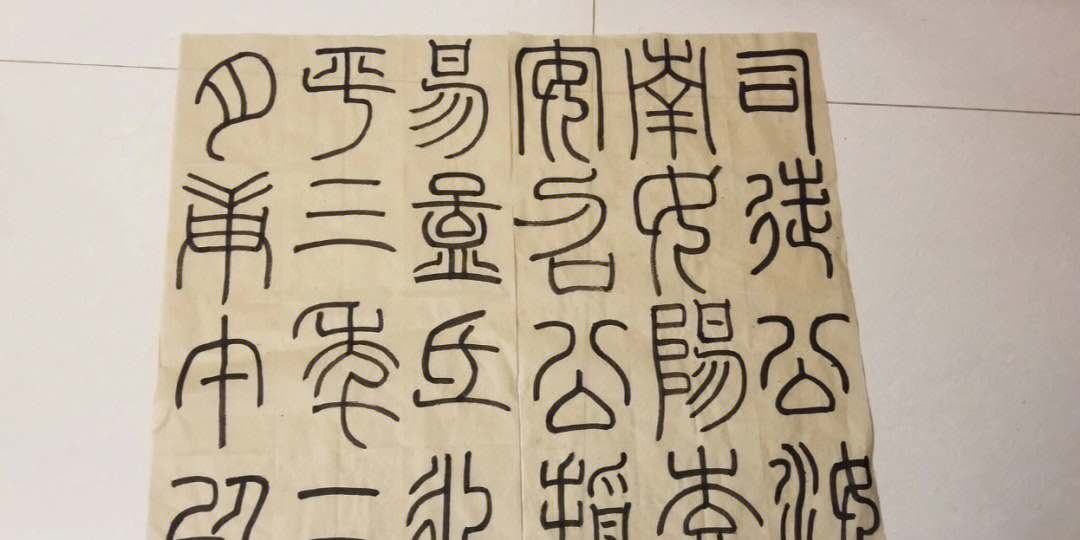 司徒公汝
南女陽袁
安召公授
易孟氏永
平三年二
月庚午以